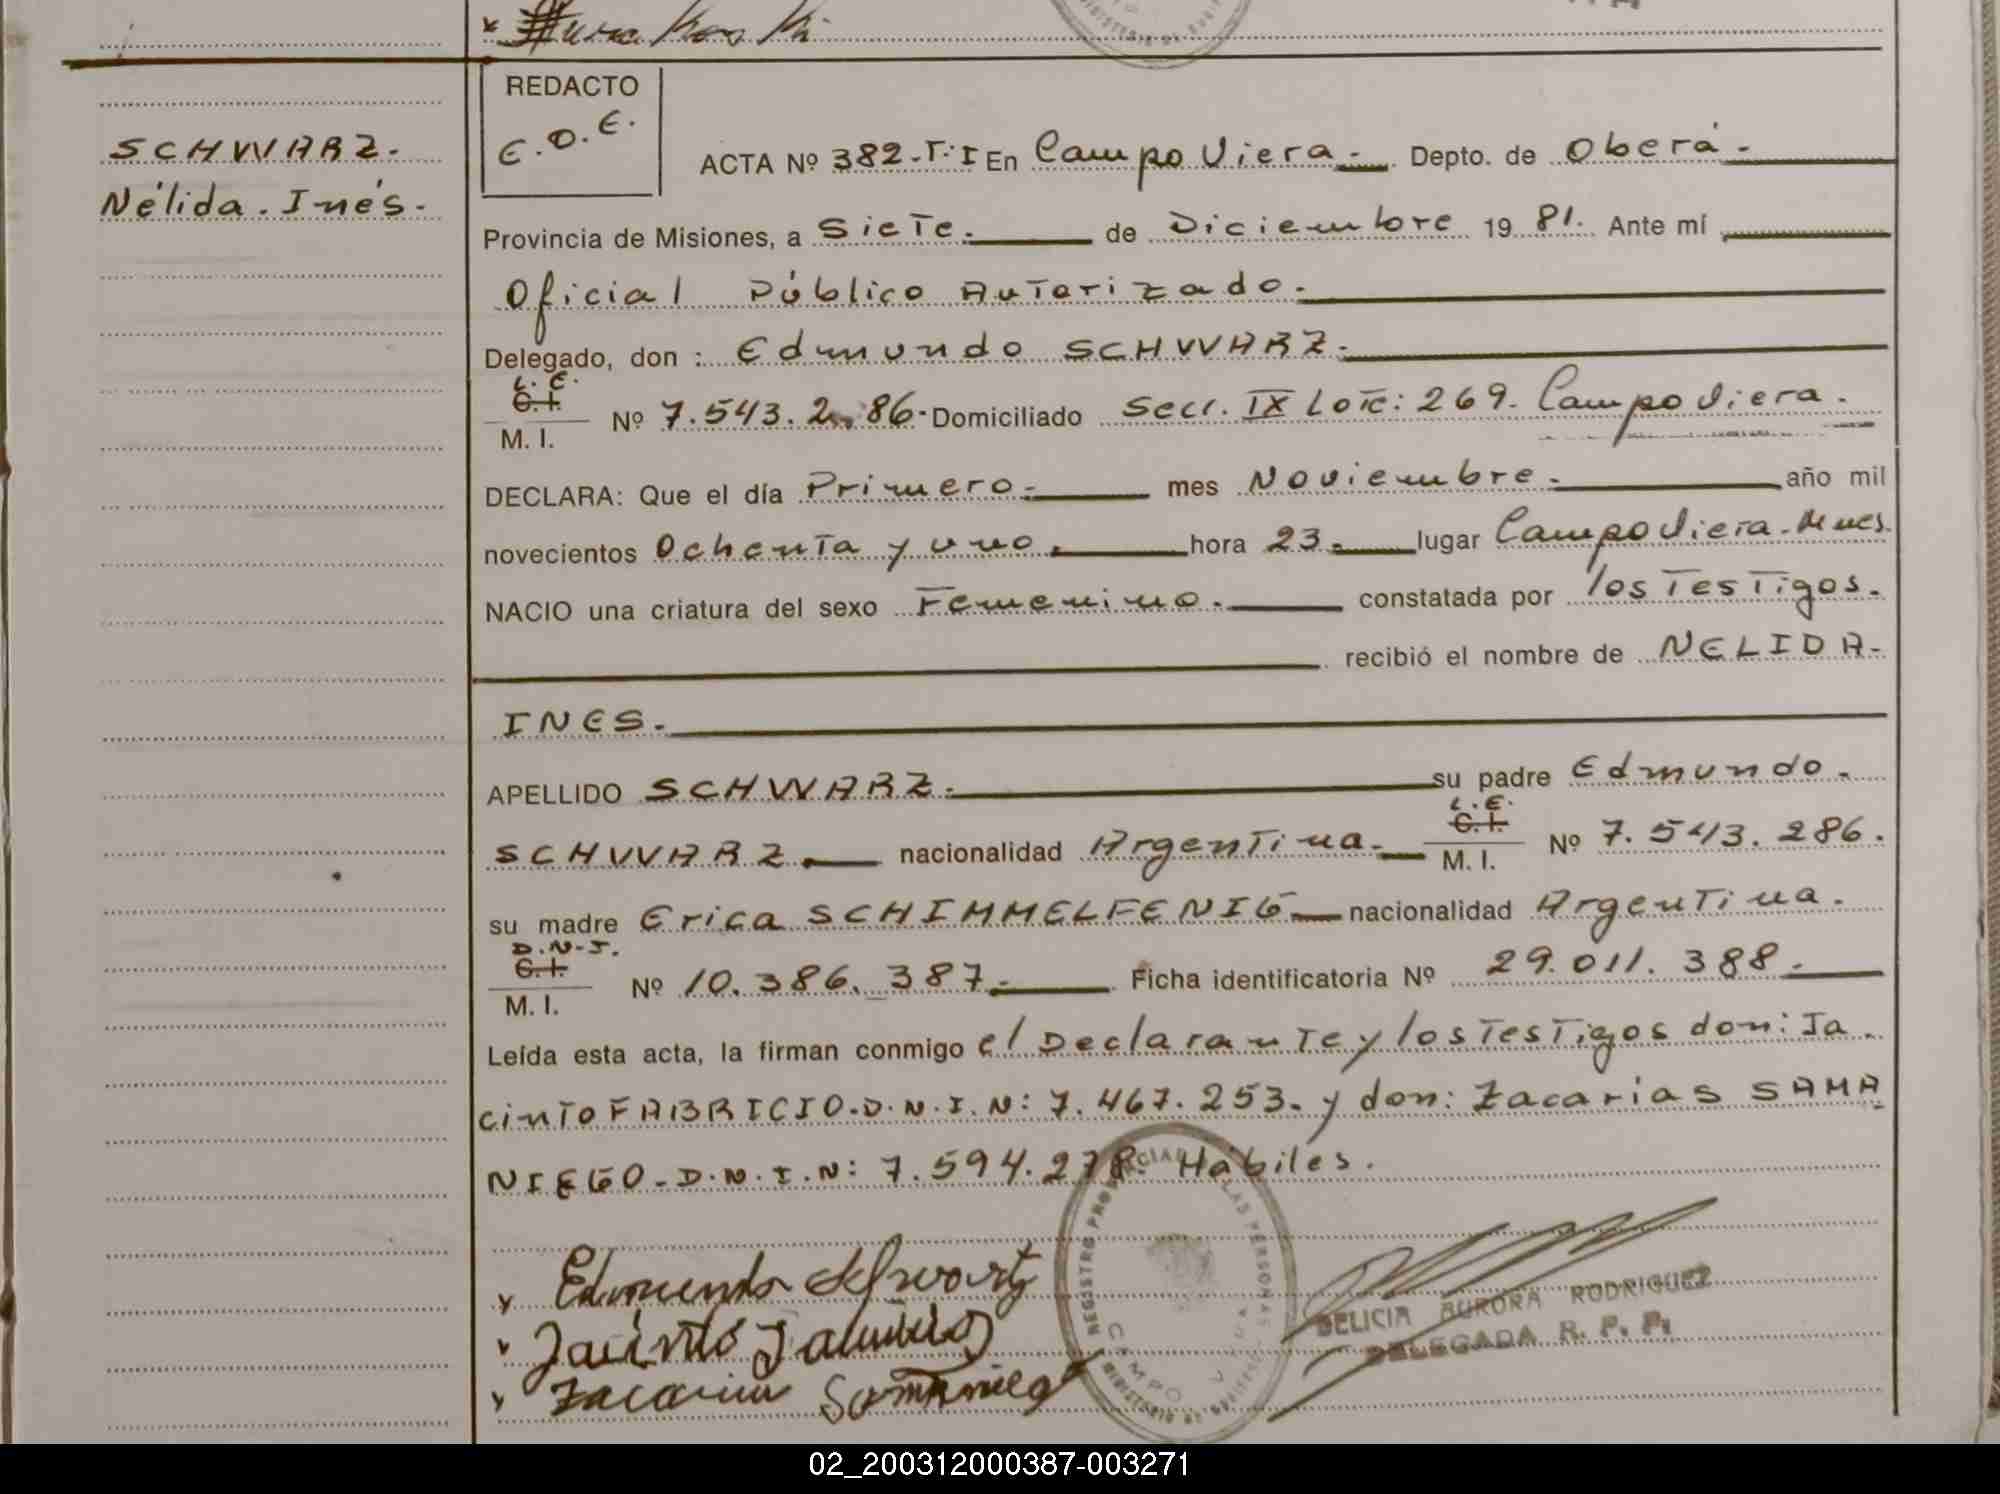 REDACTO
E.D.E.
SCHWARZ.
Nélida. Inés.
ACTA Nº 382-T.I En Campo Viera. Depto. de Oberá.
Provincia de Misiones, a Siete. de Diciembre 19 81. Ante mí
Oficial Público Autorizado.
Delegado, don : Edmundo SCHWARZ.
L. E.
C. I.
M. I. Nº 7.543.286. Domiciliado Secc. IX Lote: 269. Campo Viera.
DECLARA: Que el día Primero. mes Noviembre. año mil
novecientos Ochenta y uno. hora 23. lugar Campo Viera. Mnes.
NACIO una criatura del sexo Femenino. constatada por los Testigos.
recibió el nombre de NELIDA-
INES.
APELLIDO SCHWARZ. su padre Edmundo.
SCHWARZ. nacionalidad Argentina. L.E. C.I. M. I. Nº 7.543.286.
su madre Erica SCHIMMELFENIG nacionalidad Argentina.
D.N.I.
C.I.
M. I. Nº 10.386.387. Ficha identificatoria Nº 29.011.388.
Leída esta acta, la firman conmigo el Declarante y los Testigos don: Ja-
cinto FABRICIO. D.N.I.N: 7.467.253. y don: Zacarias SAMA
NIEGO. D.N.I.N: 7.594.278. Hábiles.
REGISTRO PROVINCIAL DE LAS PERSONAS
CAMPO VIERA
Edmundo Schwartz
Jacinto Fabricio
Zacarias Samaniego
DELICIA AURORA RODRIGUEZ
DELEGADA R. P. P.
02_200312000387-003271